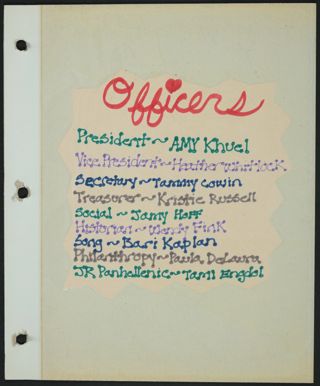 Officers
President~ AMY Khuel
Vice President~Heather Whitlock
Secretary~Tammy Cowin
Treasurer~Kristie Russell
Social ~ Jamy Hoff
Historian ~ Wendy Fink
Song ~ Bari Kaplan
Philanthropy~Paula DeLaura
JR Panhellenic~Tami Engdol